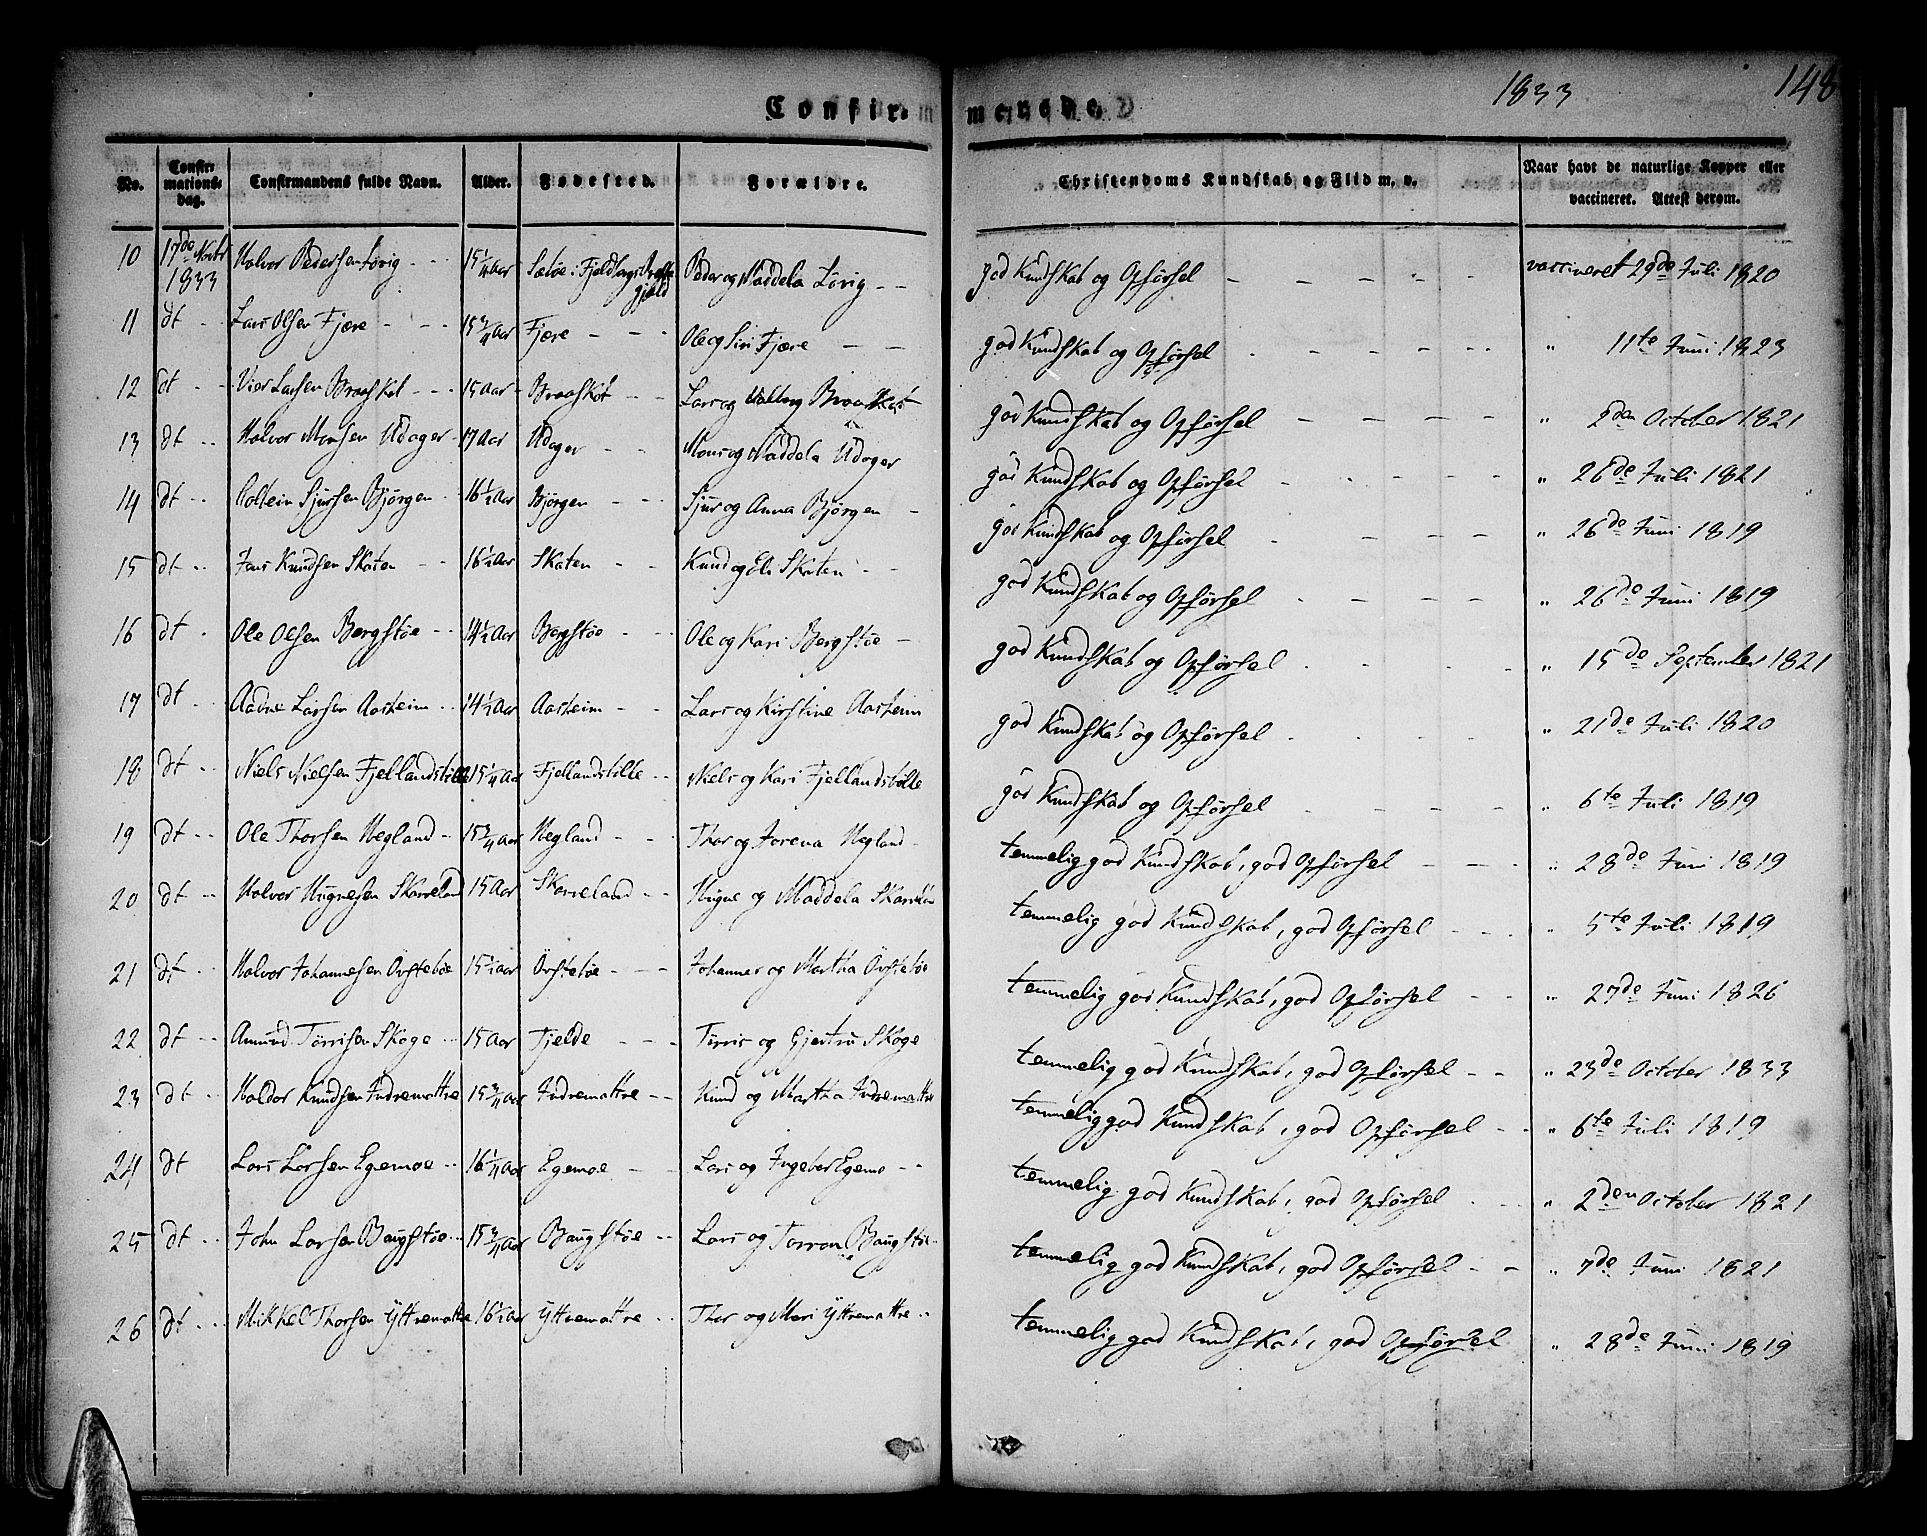 Confirmerede.
1833
148
No.
Confirmations-dag.
Confirmandens fulde Navn.
Alder.
Fødested.
Forældre.
Christendoms Kundskab og Flid m. v.
Naar havt de naturlige Kopper eller vaccineret. Attest derom.
10 17de Novbr 1833 Halvor Pedersen Løvig 15 1/4 Aar Sætøe i Fjeldbergs Præstegjeld Peder og Maddela Løvig god Kundskab og Opførsel vaccineret 29de Juli 1820
11 dt Lars Olsen Fjære 15 3/4 Aar Fjære Ole og Siri Fjære god Kundskab og Opførsel " 11te Juni 1823
12 dt Vier Larsen Braaskot 15 Aar Braaskot Lars og Valborg Braaskot god Kundskab og Opførsel " October 1821
13 dt Halvor Monsen Udager 17 Aar Udager Mons og Maddela Udager god Kundskab og Opførsel " 28de Juli 1821
14 dt Sjursen Bjørgen 16 1/2 Aar Bjørgen Sjur og Anna Bjørgen god Kundskab og Opførsel " 26de Juni 1819
15 dt Jens Knudsen Skaten 16 1/2 Aar Skaten Knud og Eli Skaten god Kundskab og Opførsel " 26de Juni 1819
16 dt Ole Olsen Bergstøe 14 1/2 Aar Bergstøe Ole og Kari Bergstøe god Kundskab og Opførsel " 15de September 1821
17 dt Aadne Larsen Aasheim 14 1/2 Aar Aasheim Lars og Kirstine Aasheim god Kundskab og Opførsel " 21de Juli 1820
18 dt Niels Nielsen Fjellandsbølle 15 1/4 Aar Fjellandsbølle Niels og Kari Fjellandsbølle god Kundskab og Opførsel " 6te Juli 1819
19 dt Ole Thorsen Hegland 15 3/4 Aar Hegland Thor og Jorena Hegland temmelig god Kundskab, god Opførsel " 28de Juni 1819
20 dt Halvor Hugnesen Skarveland 15 Aar Skarveland Hugne og Maddela Skarveland temmelig god Kundskab, god Opførsel " 5te Juli 1819
21 dt Halvor Johannesen Øvstebøe 15 1/2 Aar Øvstebøe Johannes og Martha Øvstebøe temmelig god Kundskab, god Opførsel " 27de Juni 1826
22 dt Amund Tørrisen Skoge 15 Aar Fjelde Tørris og Gjertru Skoge temmelig god Kundskab, god Opførsel " 23de October 1833
23 dt Haldor Knudsen Indremattre 15 3/4 Aar Indremattre Knud og Martha Indremattre temmelig god Kundskab, god Opførsel " 6te Juli 1819
24 dt Lars Larsen Egemoe 16 1/4 Aar Egemoe Lars og Ingebor Egemo temmelig god Kundskab, god Opførsel " 2den October 1821
25 dt John Larsen Baugstøe 15 3/4 Aar Baugstøe Lars og Torron Baugstøe temmelig god Kundskab, god Opførsel " 7de Juni 1821
26 dt Mikkel Thorsen Yttremattre 16 1/2 Aar Yttremattre Thor og Mari Yttremattre temmelig god Kundskab, god Opførsel " 28de Juni 1819